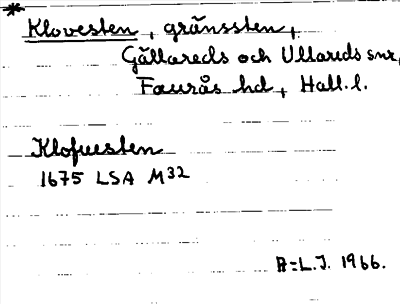 * Klovesten, gränssten,
Gällareds och Ullareds snr,
Faurås hd, Hall.l.
Klofwesten
1675 LSA M32
B=L.J. 1966.